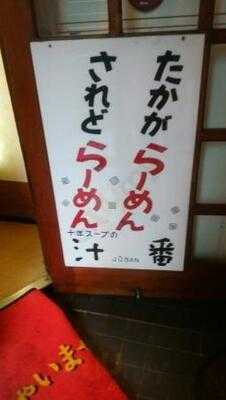 たかがらーめん
されどらーめん
十年スープの
汁一番
JūBAN
やいま